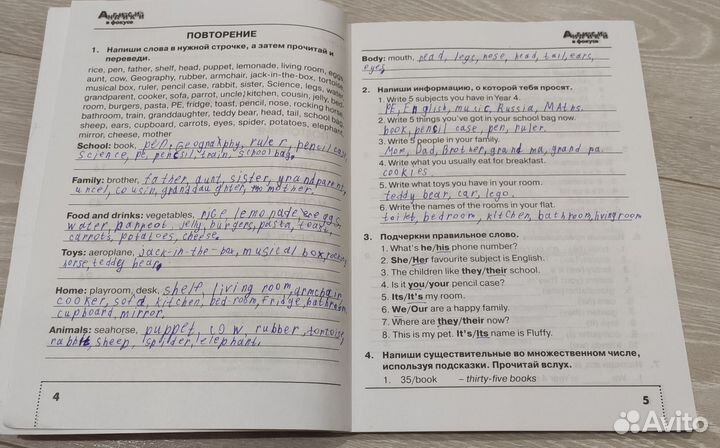 Английский
в фокусе
ПОВТОРЕНИЕ
1. Напиши слова в нужной строчке, а затем прочитай и
переведи.
rice, pen, father, shelf, head, puppet, lemonade, living room, eggs,
aunt, cow, Geography, rubber, armchair, jack-in-the-box, tortoise,
musical box, ruler, pencil case, rabbit, sister, Science, legs, water,
grandparent, cooker, sofa, parrot, uncle, kitchen, cousin, jelly, bed-
room, burgers, pasta, PE, fridge, toast, pencil, nose, rocking horse,
bathroom, train, granddaughter, teddy bear, head, tail, school bag,
sheep, ears, cupboard, carrots, eyes, spider, potatoes, elephant,
mirror, cheese, mother
School: book, pen, Geography, ruler, pencil case
Science, PE, pencil, train, school bag.
Family: brother, father, aunt, sister, grandparent,
uncel, cousin, granddaughter, mother.
Food and drinks: vegetables, rice lemonade eggs
water, parreat, jelly, burgers, pasta, toast,
carrots, potatoes, cheese.
Toys: aeroplane, jack-in-the-box, musical box, rocking
horse, teddy bear.
Home: playroom, desk, shelf, living room, armchair
cooker, sofa, kitchen, bed-room, fridge, bathroom
cupboard, mirror.
Animals: seahorse, puppet, cow, rubber, tortoise,
rabbit, sheep, spider, elephant.
4
Английский
в фокусе
Body: mouth, head, legs, nose, head, tail, ears,
eyes
2. Напиши информацию, о которой тебя просят.
1. Write 5 subjects you have in Year 4.
PE, English, music, Russia, Maths.
2. Write 5 things you've got in your school bag now.
book, pencil case, pen, ruler.
3. Write 5 people in your family.
Mom, Dad, Brother, grand ma, grand pa.
4. Write what you usually eat for breakfast.
cookies.
5. Write what toys you have in your room.
teddy bear, car, lego.
6. Write the names of the rooms in your flat.
toilet, bedroom, kitchen, bathroom, living room
3. Подчеркни правильное слово.
1. What's he/his phone number?
2. She/Her favourite subject is English.
3. The children like they/their school.
4. Is it you/your pencil case?
5. Its/It's my room.
6. We/Our are a happy family.
7. Where are they/their now?
8. This is my pet. It's/Its name is Fluffy.
4. Напиши существительные во множественном числе,
используя подсказки. Прочитай вслух.
1. 35/book – thirty-five books
5
Avito